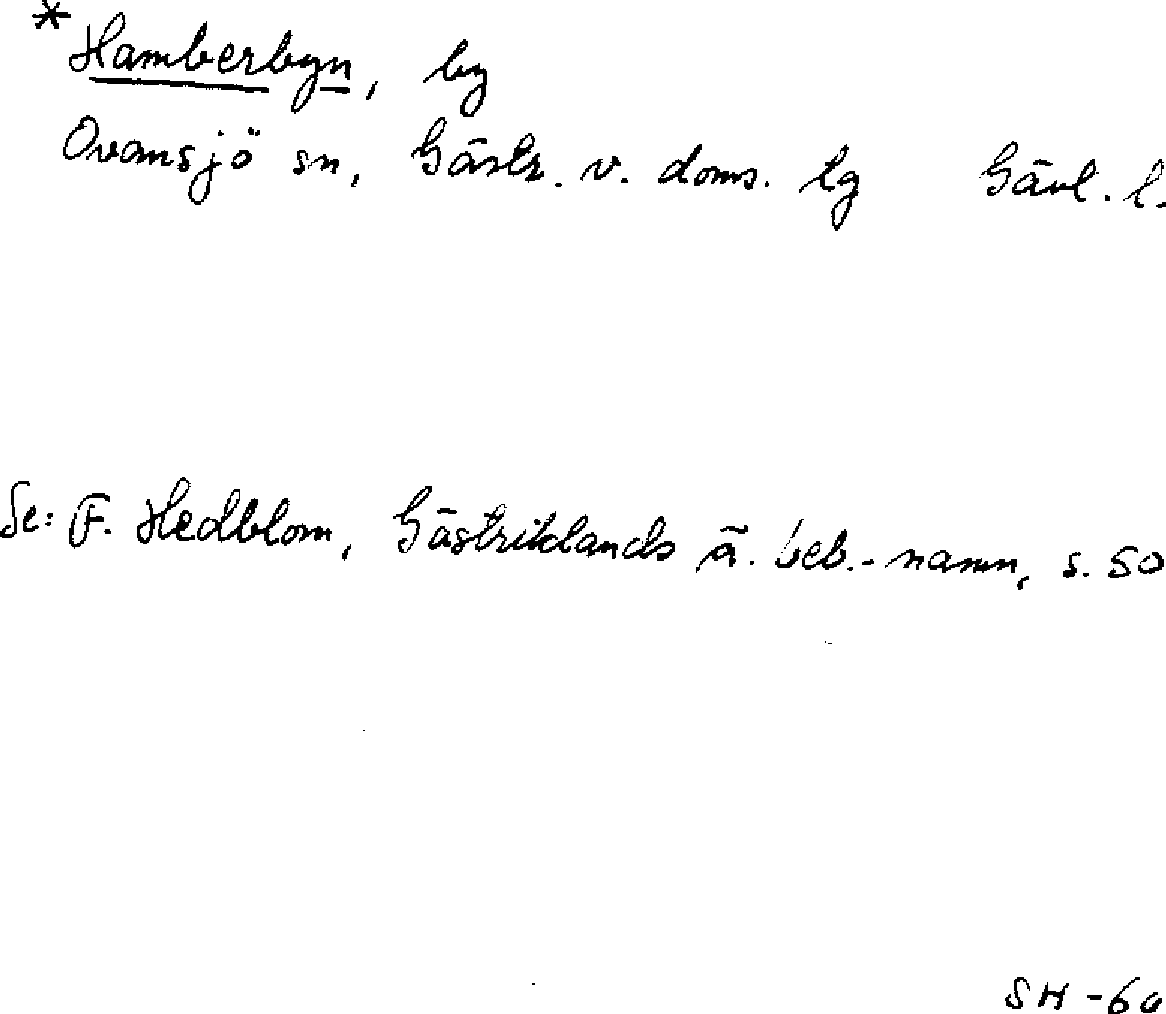 *Hamberbyn, by
Ovansjö sn, Gästr. v. doms. tg Gävl. l.
Se: F. Hedblom, Gästriklands ä. beb.-namn, s. 50
SH -60